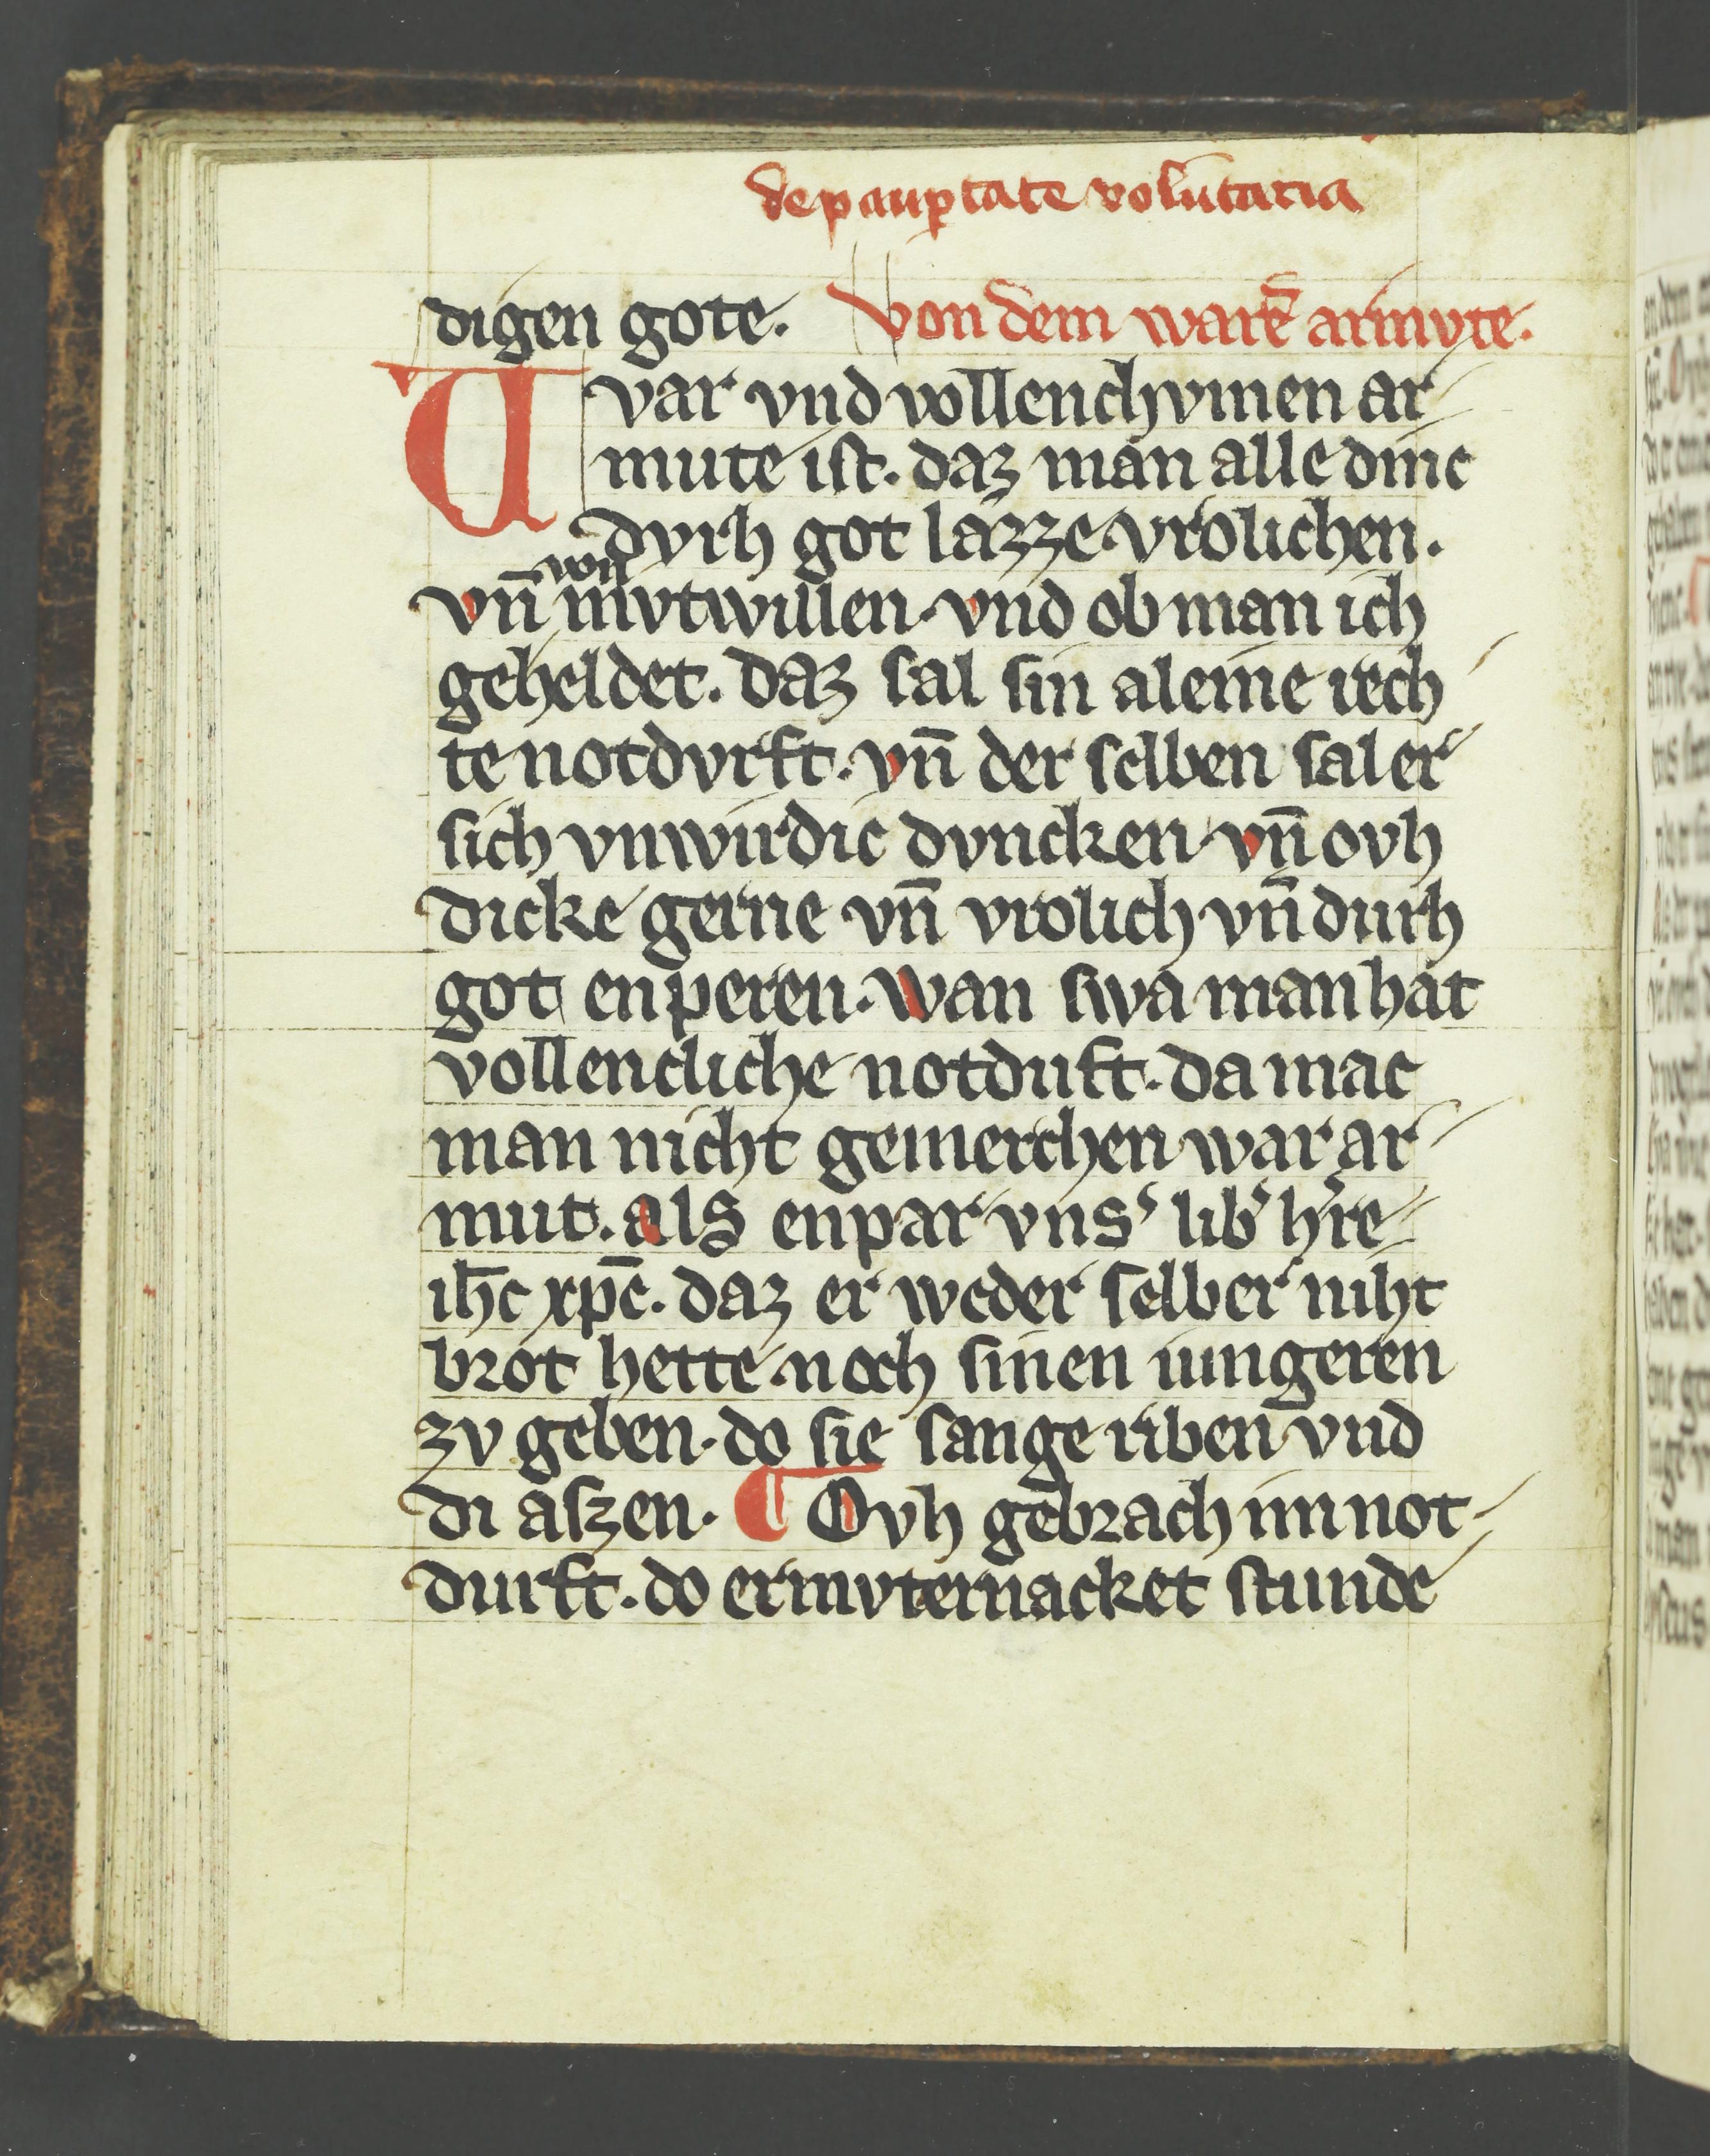 de paup̲tate volūtaria
digen gote. Von dem warē armvte.
Uvar vnd vollenchvmen ar
mute ist. daz man alle dinc
dvrh got lazze vrolichen.
vn̄ mvtwillen. vnd ob man ich
geheldet. daz sal sin aleine rech
te notdvrft. vn̄ der selben sal er
sich vnwirdic dvncken vn̄ ovh
dicke gerne vn̄ vrolich vn̄ durh
got enperen. Wan swa man hat
vollencliche notduft. da mac
man nicht gemerchen war ar
mut. als enpar vnsʼ libʼ hʼre
ih̄c xp̄c. daz er weder selber niht
brot hette noch sinen iungeren
zv geben. do sie sange riben vnd
di aszen. ¶ Ovh gebrach im not
durft. do er mvter nacket stunde